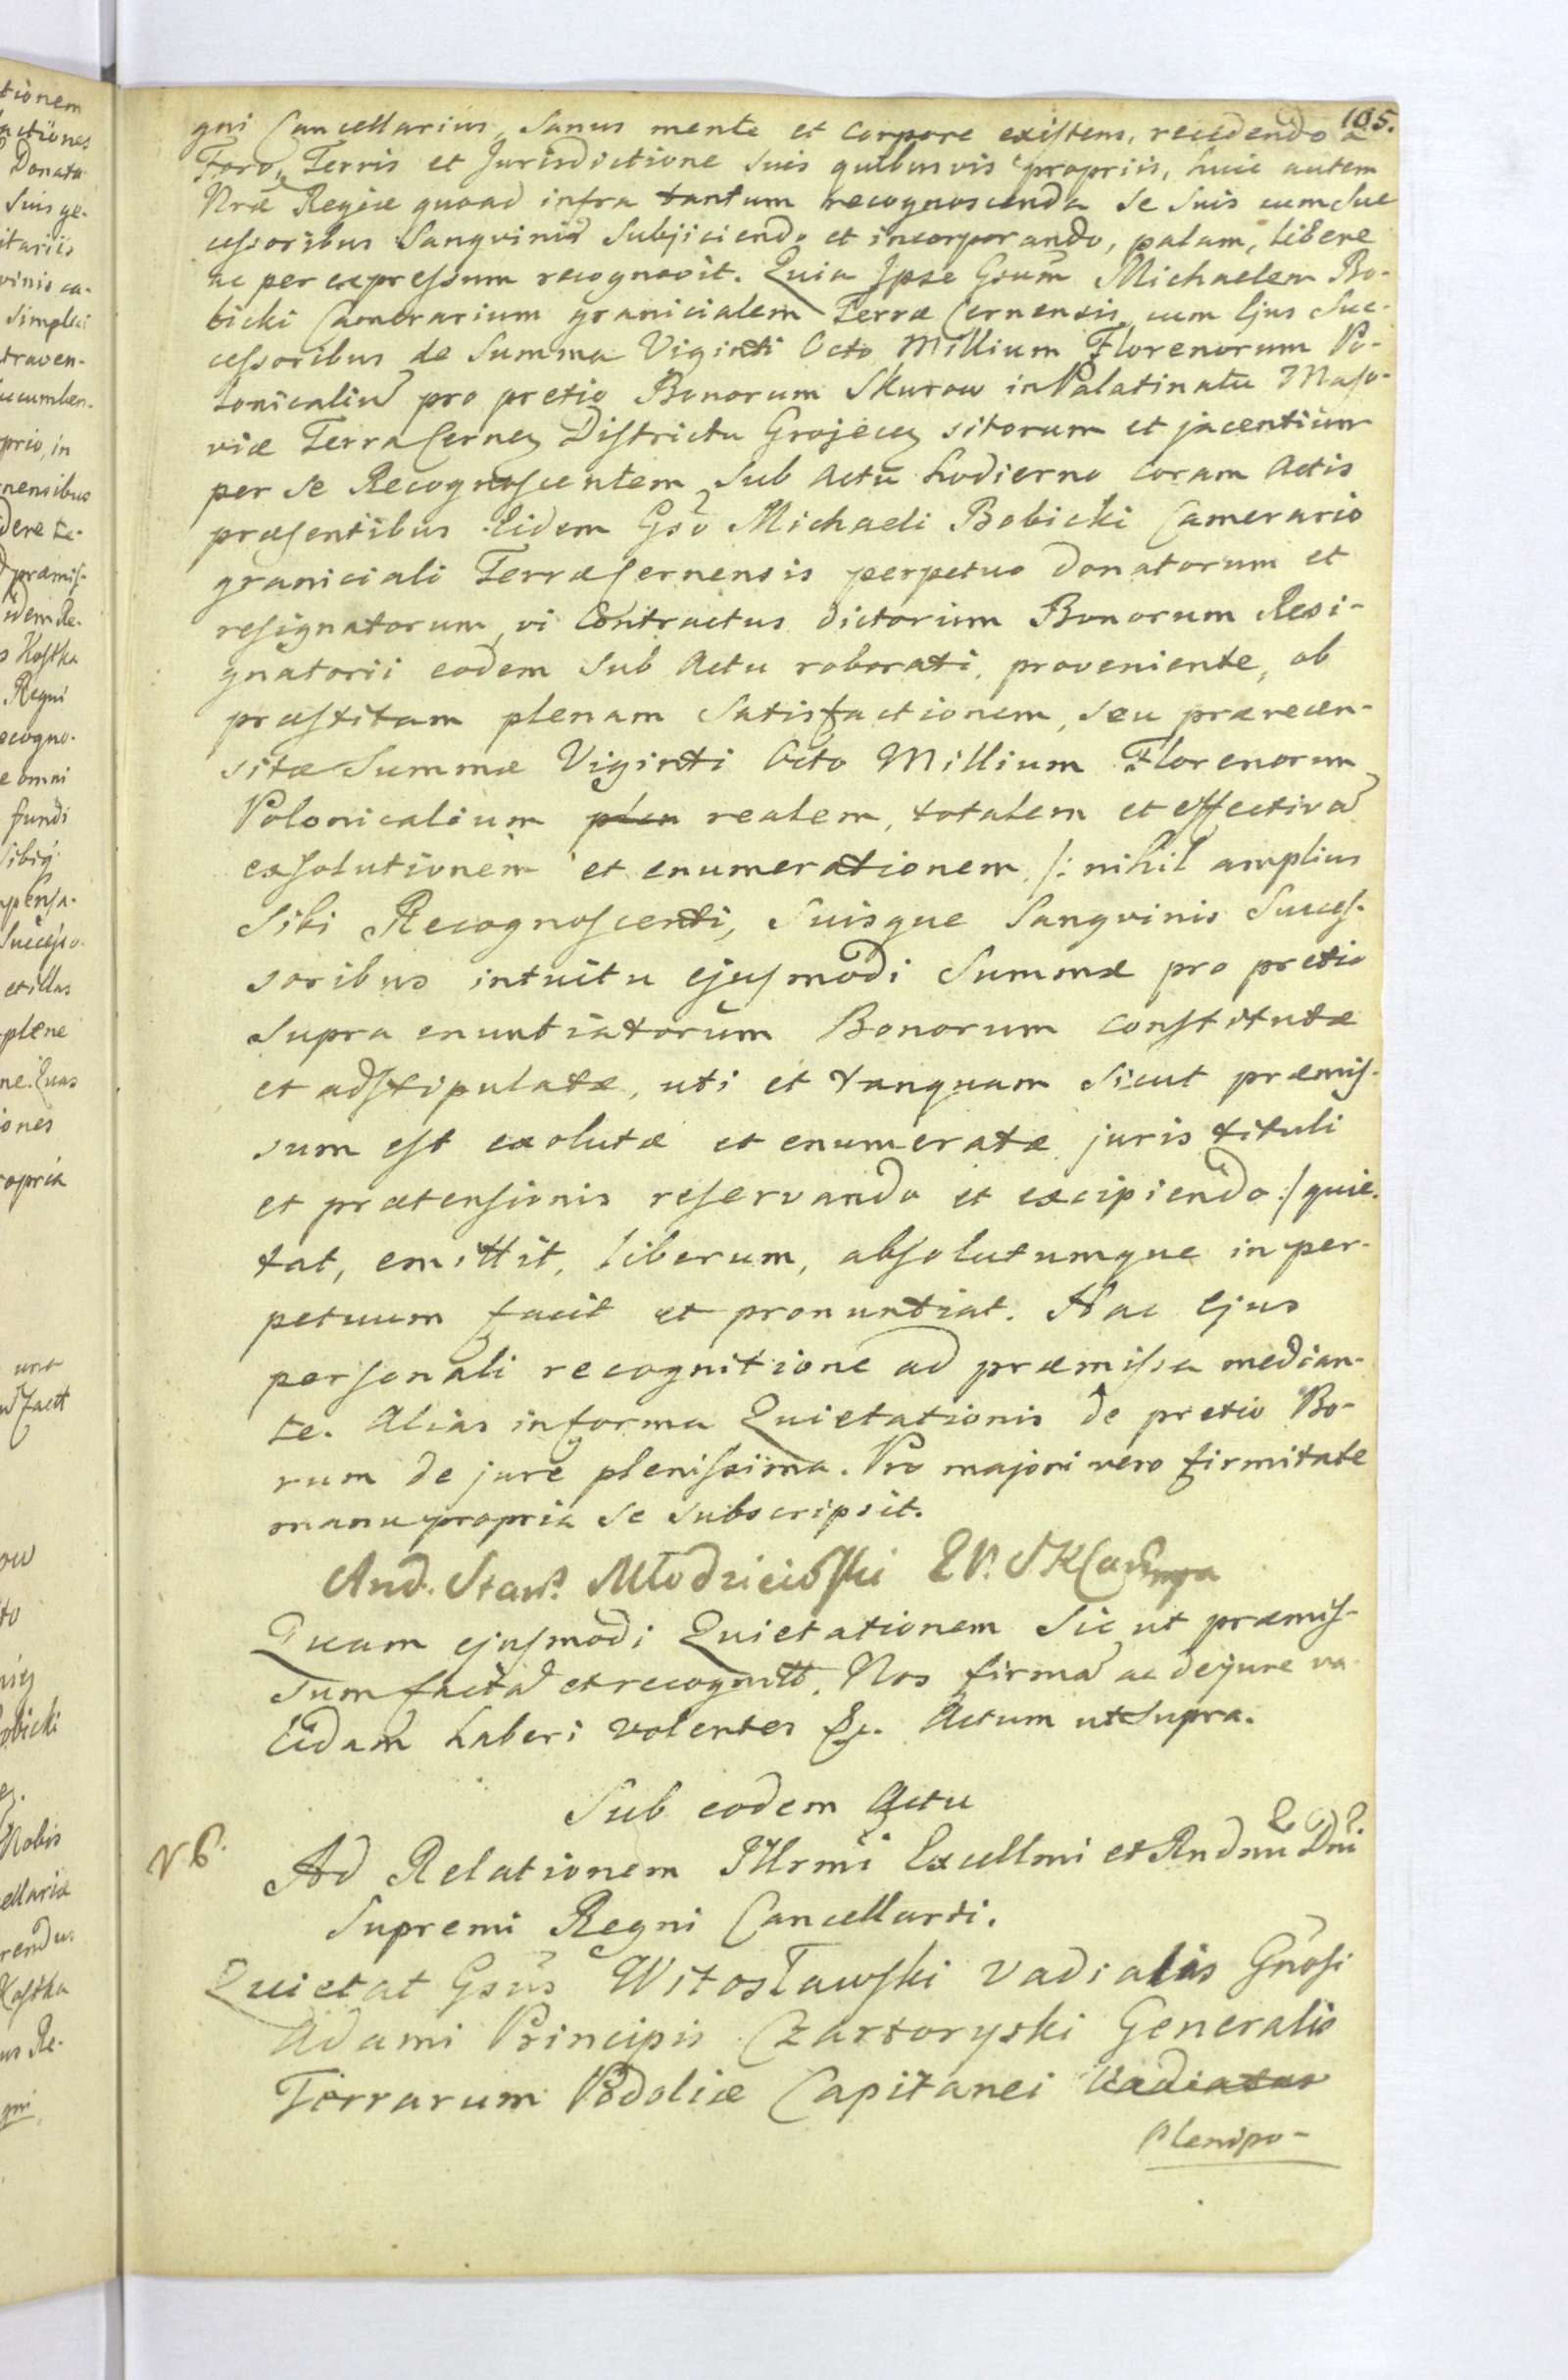 105.
gni Cancellarius, Sanus mente et Corpore existens, recedendo a
Foro, Terris et Jurisdictione Suis quibusvis propriis, huic autem
Nrae Regiae quoad infra tantum recognoscenda Se Suis cum Suc
cessoribus Sangvinis Subjiciendo et incorporando, palam, libere
ac per expressum recognovit. Quia Ipse Gsum Michaelem Bo-
bicki Camerarium granicialem Terrae Cernensis, cum Ejus Suc-
cessoribus de Summa Viginti Octo Millium Florenorum Po-
lonicaliu pro pretio Bonorum Skurow in Palatinatu Maso-
viae Terra Cernen Districtu Grojecen sitorum et jacentium
per se Recognoscentem Sub Actu hodierno coram Actis
praesentibus Eidem Gso Michaeli Bobicki Camerario
graniciali Terrae Cernensis perpetuo donatorum et
resignatorum, vi Contractus dictorum Bonorum Resi-
gnatorii eodem Sub Actu roborati, proveniente, ob
praestitam plenam Satisfactionem, seu praerecen-
sitae Summae Viginti Octo Millium Florenorum
Polonicalium plen realem, totalem et effectiva
exsolutionem et enumerationem /: nihil amplius
Sibi Recognoscenti, Suisque Sangvinis Succes-
soribus intuitu ejusmodi Summae pro pretio
supra enuntiatorum Bonorum constitutae
et adstipulatae, uti et tanquam Sicut praemis-
sum est exolutae et enumeratae juris tituli
et praetensionis reservando et excipiendo :/ quie-
tat, emittit, liberum, absolutumque in per-
petuum facit et pronuntiat. Hac Ejus
personali recognitione ad praemissa median-
te. Alias in forma Quietationis de pretio Bo-
rum de jure plenissima. Pro majori vero firmitate
manu propria se subscripsit.
And. Stans Młodzieiowski
Quam ejusmodi Quietationem Sic ut praemis-
sum facta et recognitt. Nos firma ac de jure va-
lidam haberi volentes &c. Actum ut Supra.
Sub eodem Actu
Ad Relationem Illrmi Excellmi et Rndmi Dni
Supremi Regni Cancellarii.
Quietat Gsus Witosławski Vadialis Gnosi
Adami Principis Czartoryski Generalis
Terrarum Podoliae Capitanei Vadiatus
Plenipo-